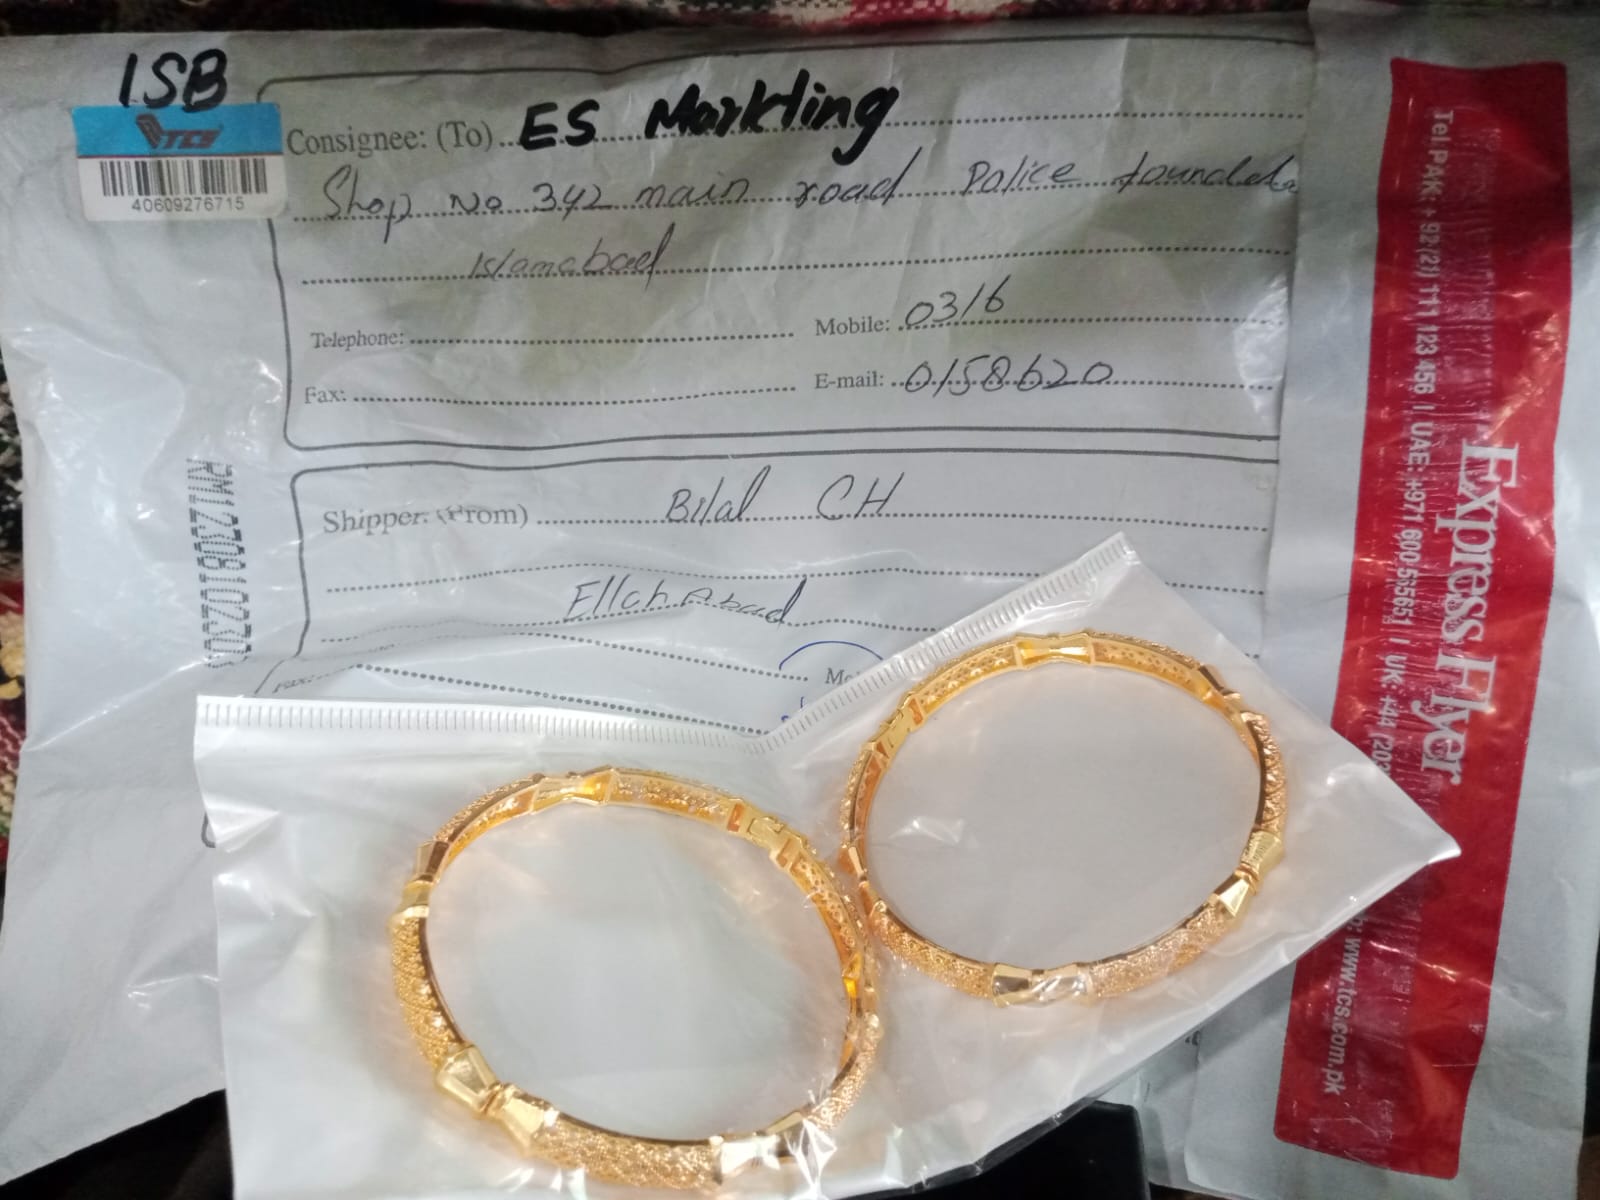 ISB
TCS
40609276715
Consignee: (To) ES Markting
Shop No 342 main road Police foundata
Islamabad
Telephone:
Mobile: 0316
Fax:
E-mail: 0158620
Shipper: (From) Bilal CH
Ellah Abad
Fax:
Express Flyer
Tel PAK: + 92 (21) 111 123 456 I UAE: +971 600 565651 I UK: +44 (20
www.tcs.com.pk